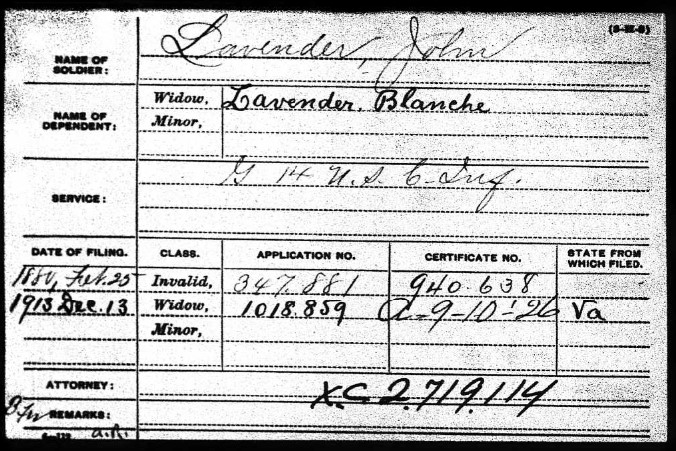 (3-111-8)
NAME OF SOLDIER: Lavender, John
NAME OF DEPENDENT: Widow, Lavender, Blanche
Minor,
SERVICE: G 14 U.S.C. Inf.
DATE OF FILING. CLASS. APPLICATION NO. CERTIFICATE NO. STATE FROM WHICH FILED.
1880, Feb. 25 Invalid, 347.881 940.638
1913 Dec. 13 Widow, 1018.859 A-9-10-'26 Va
Minor,
ATTORNEY: XC 2,719,114
REMARKS: